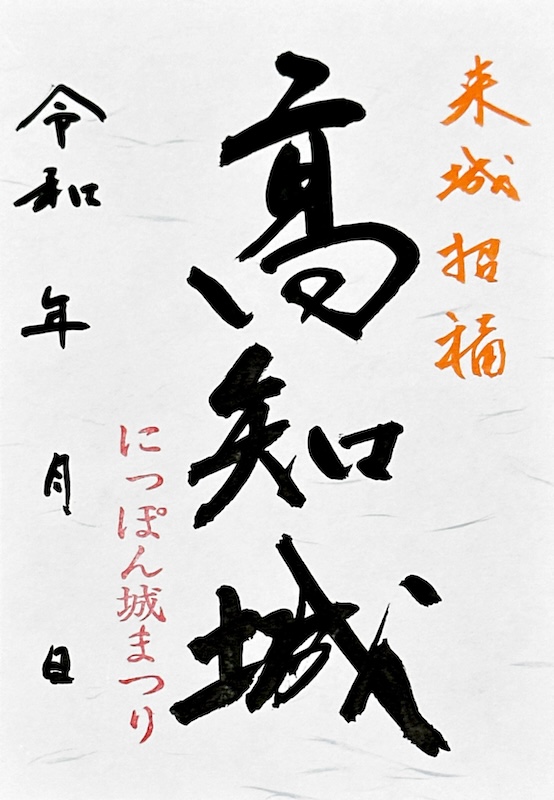 来城招福
高知城
にっぽん城まつり
令和 年 月 日